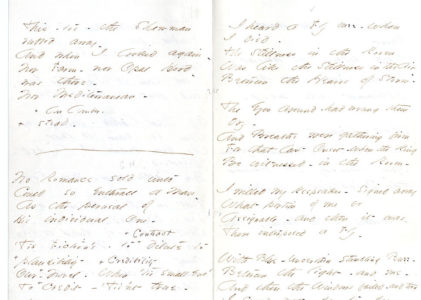 This - is - the Showman
rubbed away
And when I looked again
Nor Farm - nor Opal Herd
was there -
Nor Mediterranean -
+ 
+ stead -
No Romance sold unto
Could so enthrall a Man -
As the perusal of
His individual One -
+ Contract
'Tis Fiction's - to dilute to
plausibility + Credibility
Our - Novel. When 'tis small eno'
To Credit - 'Tis n't true -
I heard a Fly buzz - when
I died -
The Stillness in the Room
Was like the Stillness in the Air -
Between the Heaves of Storm -
The Eyes around had wrung them
dry -
And Breaths were gathering firm
For that last Onset - when the King
Be witnessed - in the Room -
I willed my Keepsakes - Signed away
What portion of me be
Assignable - and then it was
There interposed a Fly -
With Blue - uncertain stumbling Buzz -
Between the light - and me -
And then the Windows failed - and then